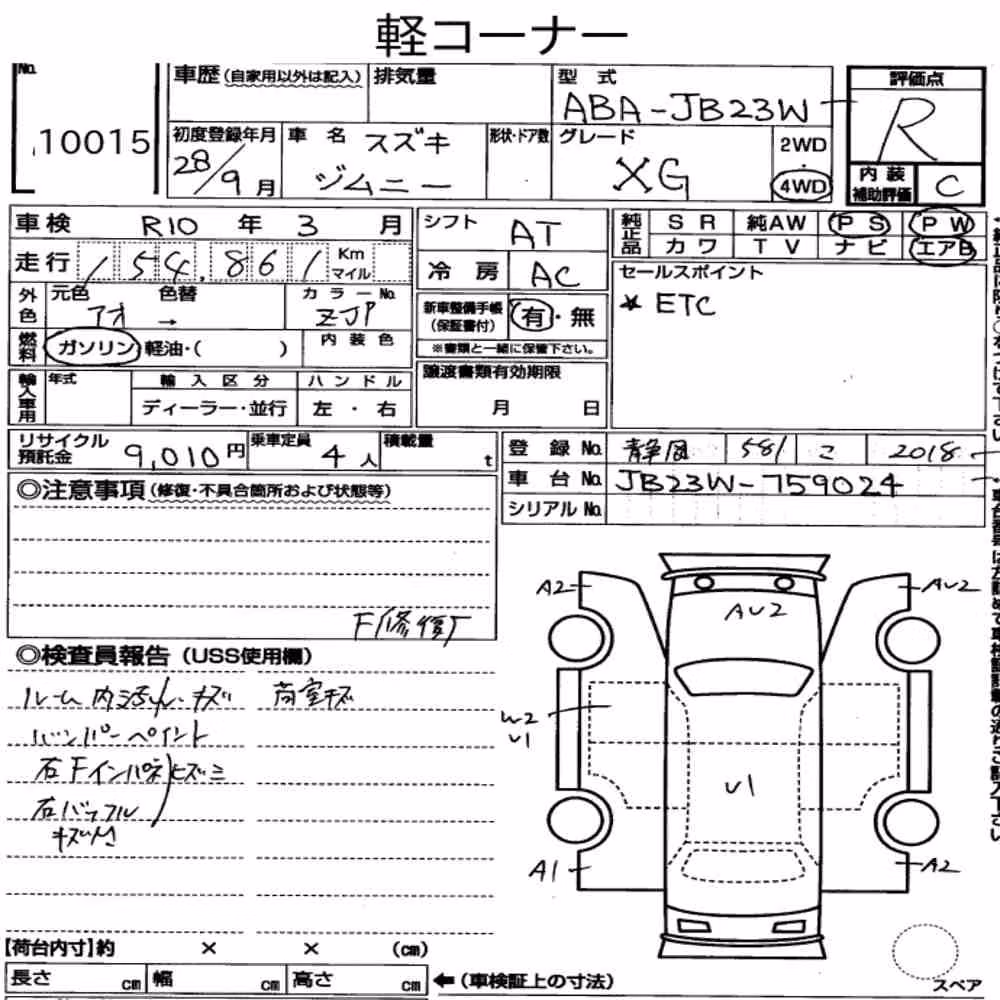 軽コーナー
No. 10015
車歴(自家用以外は記入) 排気量 型式 ABA-JB23W 評価点 R
初度登録年月 28/9月 車名 スズキ ジムニー 形状・ドア数 グレード XG 2WD・4WD 内装補助評価 C
車検 R10年3月
走行 154,861 Km マイル
シフト AT
冷房 AC
純正品 SR 純AW PS PW
カワ TV ナビ エアB
外色 元色 アオ → 色替 カラーNo. ZJP
燃料 ガソリン 軽油・( ) 内装色
新車整備手帳(保証書付) 有・無
※書類と一緒に保管下さい。
セールスポイント
* ETC
輸入車用 年式 輸入区分 ハンドル
ディーラー・並行 左・右
譲渡書類有効期限
月 日
リサイクル預託金 9,010円 乗車定員 4人 積載量 t
登録No. 静岡 581 こ 2018
車台No. JB23W-759024
シリアルNo.
◎注意事項(修復・不具合箇所および状態等)
F修復
◎検査員報告(USS使用欄)
ルーム内汚れ・キズ 荷室キズ
バンパーペイント
右Fインパネヒズミ
右バッフル
A2 AU2
AU2
W2
U1
U1
A1 A2
【荷台内寸】約 × × (cm)
長さ cm 幅 cm 高さ cm ←(車検証上の寸法)
スペア